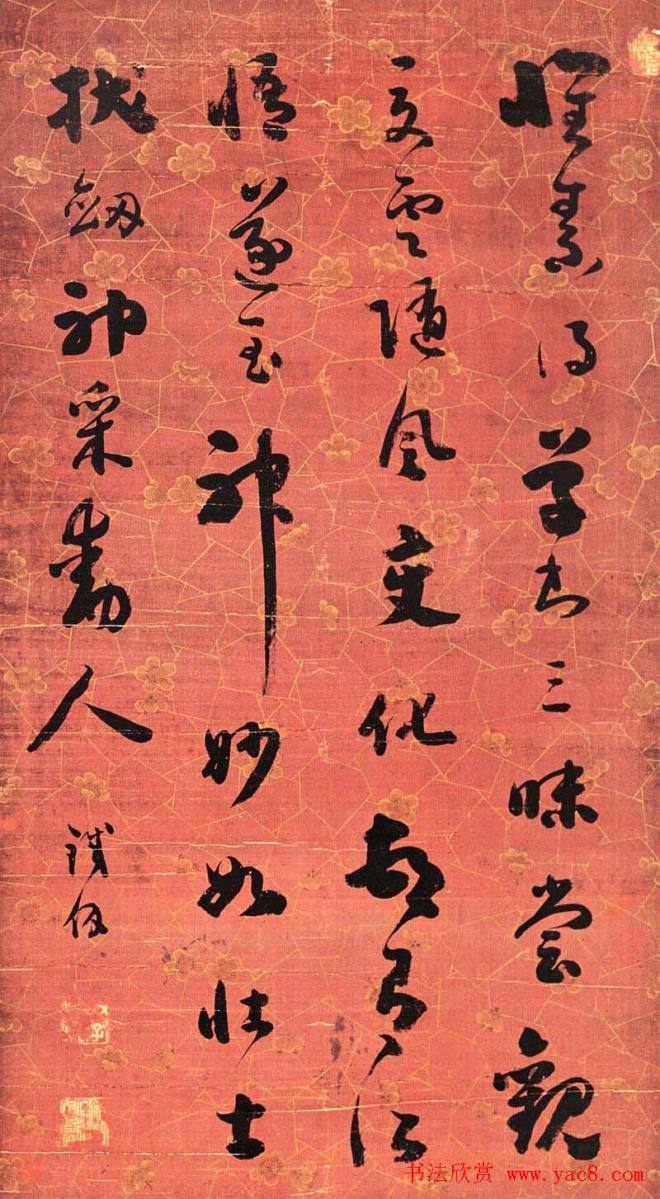 懷素得草書三昧嘗觀
夏雲隨風變化頓有所
悟遂至神妙如壯士
拔劍神采動人
鐵保
书法欣赏 www.yac8.com